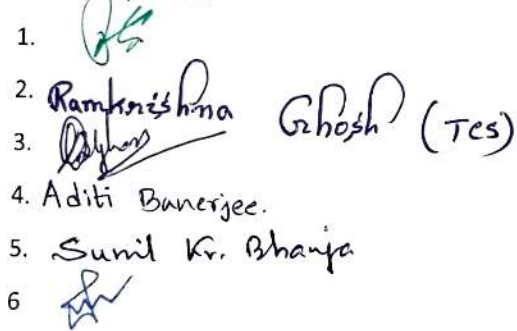 1.
2. Ramkrishna Ghosh (TCS)
3.
4. Aditi Banerjee.
5. Sunil Kr. Bhanja
6